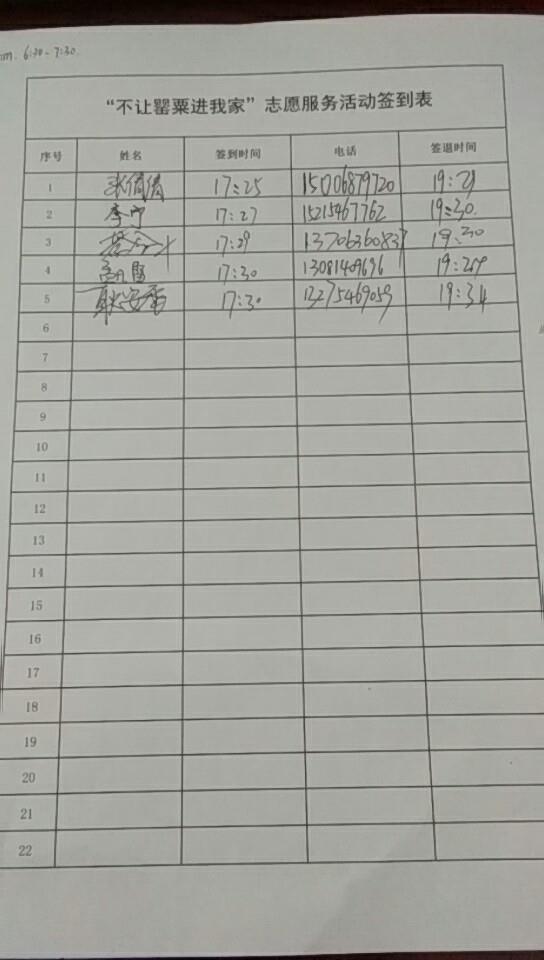 6:30-7:30.
“不让罂粟进我家”志愿服务活动签到表
序号 姓名 签到时间 电话 签退时间
1 张倩倩 17:25 15006879720 19:29
2 李宁 17:27 15215467762 19:30.
3 17:29 13706360837 19:30
4 17:30 13081409696 19:29
5 17:30 13275469059 19:34
6
7
8
9
10
11
12
13
14
15
16
17
18
19
20
21
22